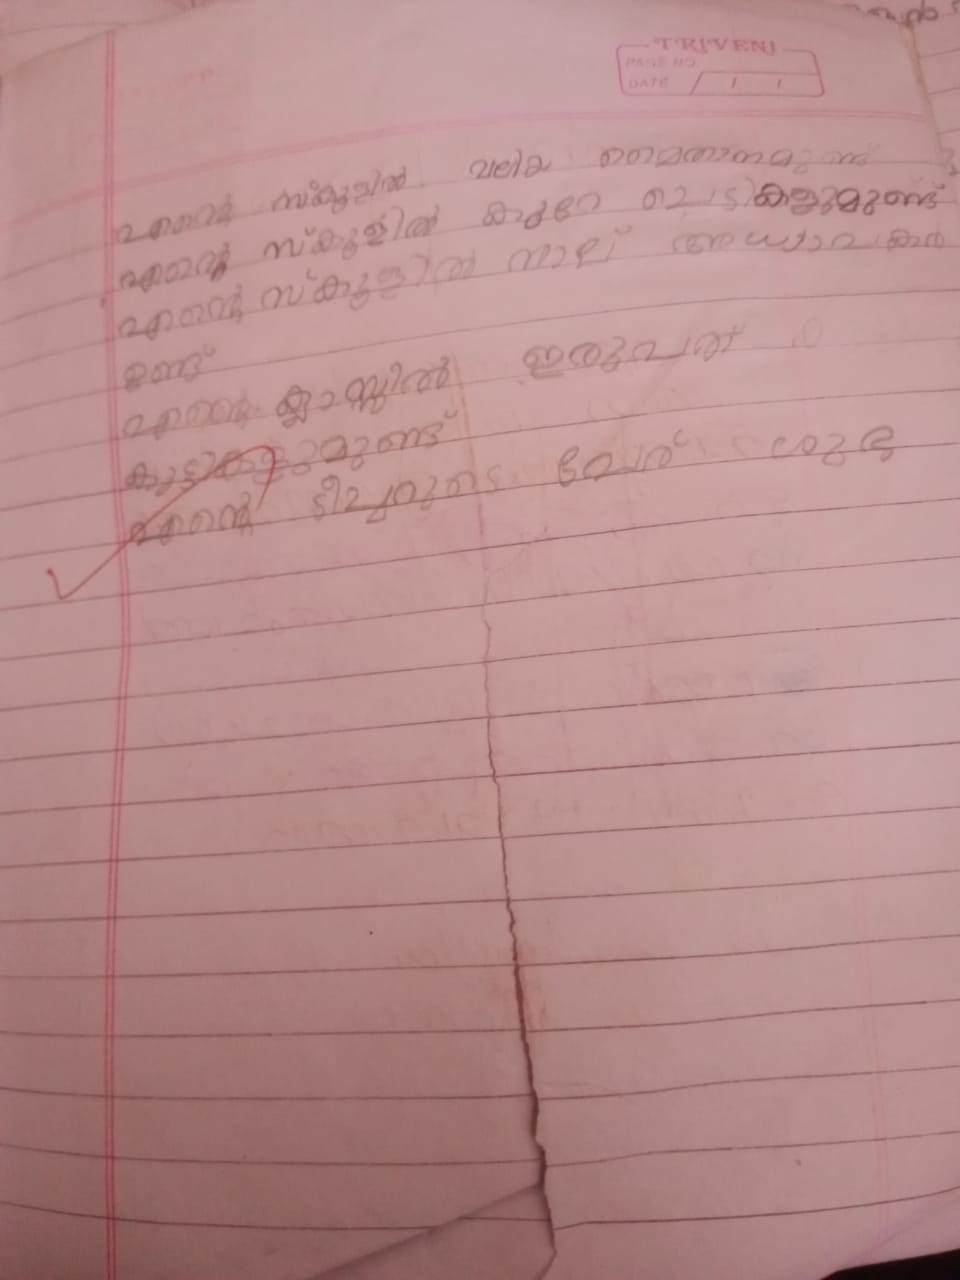 TRIVENI
PAGE NO.
DATE / /
എന്റെ സ്കൂളിൽ വലിയ മൈതാനമുണ്ട്
എന്റെ സ്കൂളിൽ കുറേ ചെടികളുമുണ്ട്
എന്റെ സ്കൂളിൽ നാല് അധ്യാപകർ
ഉണ്ട്
എന്റെ ക്ലാസ്സിൽ ഇരുപത്
കുട്ടികളുമുണ്ട്
എന്റെ ടീച്ചറുടെ പേര്